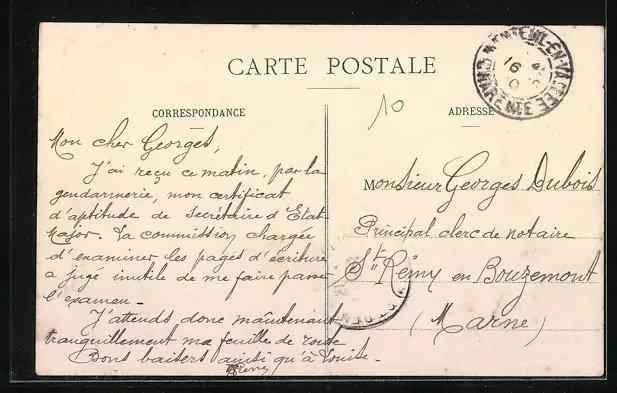 CARTE POSTALE
CORRESPONDANCE
ADRESSE
10
NANTEUIL-EN-VALLÉE
16
CHARENTE
Mon cher Georges,
J'ai reçu ce matin, par la
gendarmerie, mon certificat
d'aptitude de Secrétaire d'Etat
Major. La commission chargée
d'examiner les pages d'écriture
a jugé inutile de me faire passer
l'examen -
J'attends donc maintenant
tranquillement ma feuille de route
Bons baisers ainsi qu'à Louise -
Pierre
Monsieur Georges Dubois
Principal clerc de notaire
St Rémy en Bouzemont
(Marne)